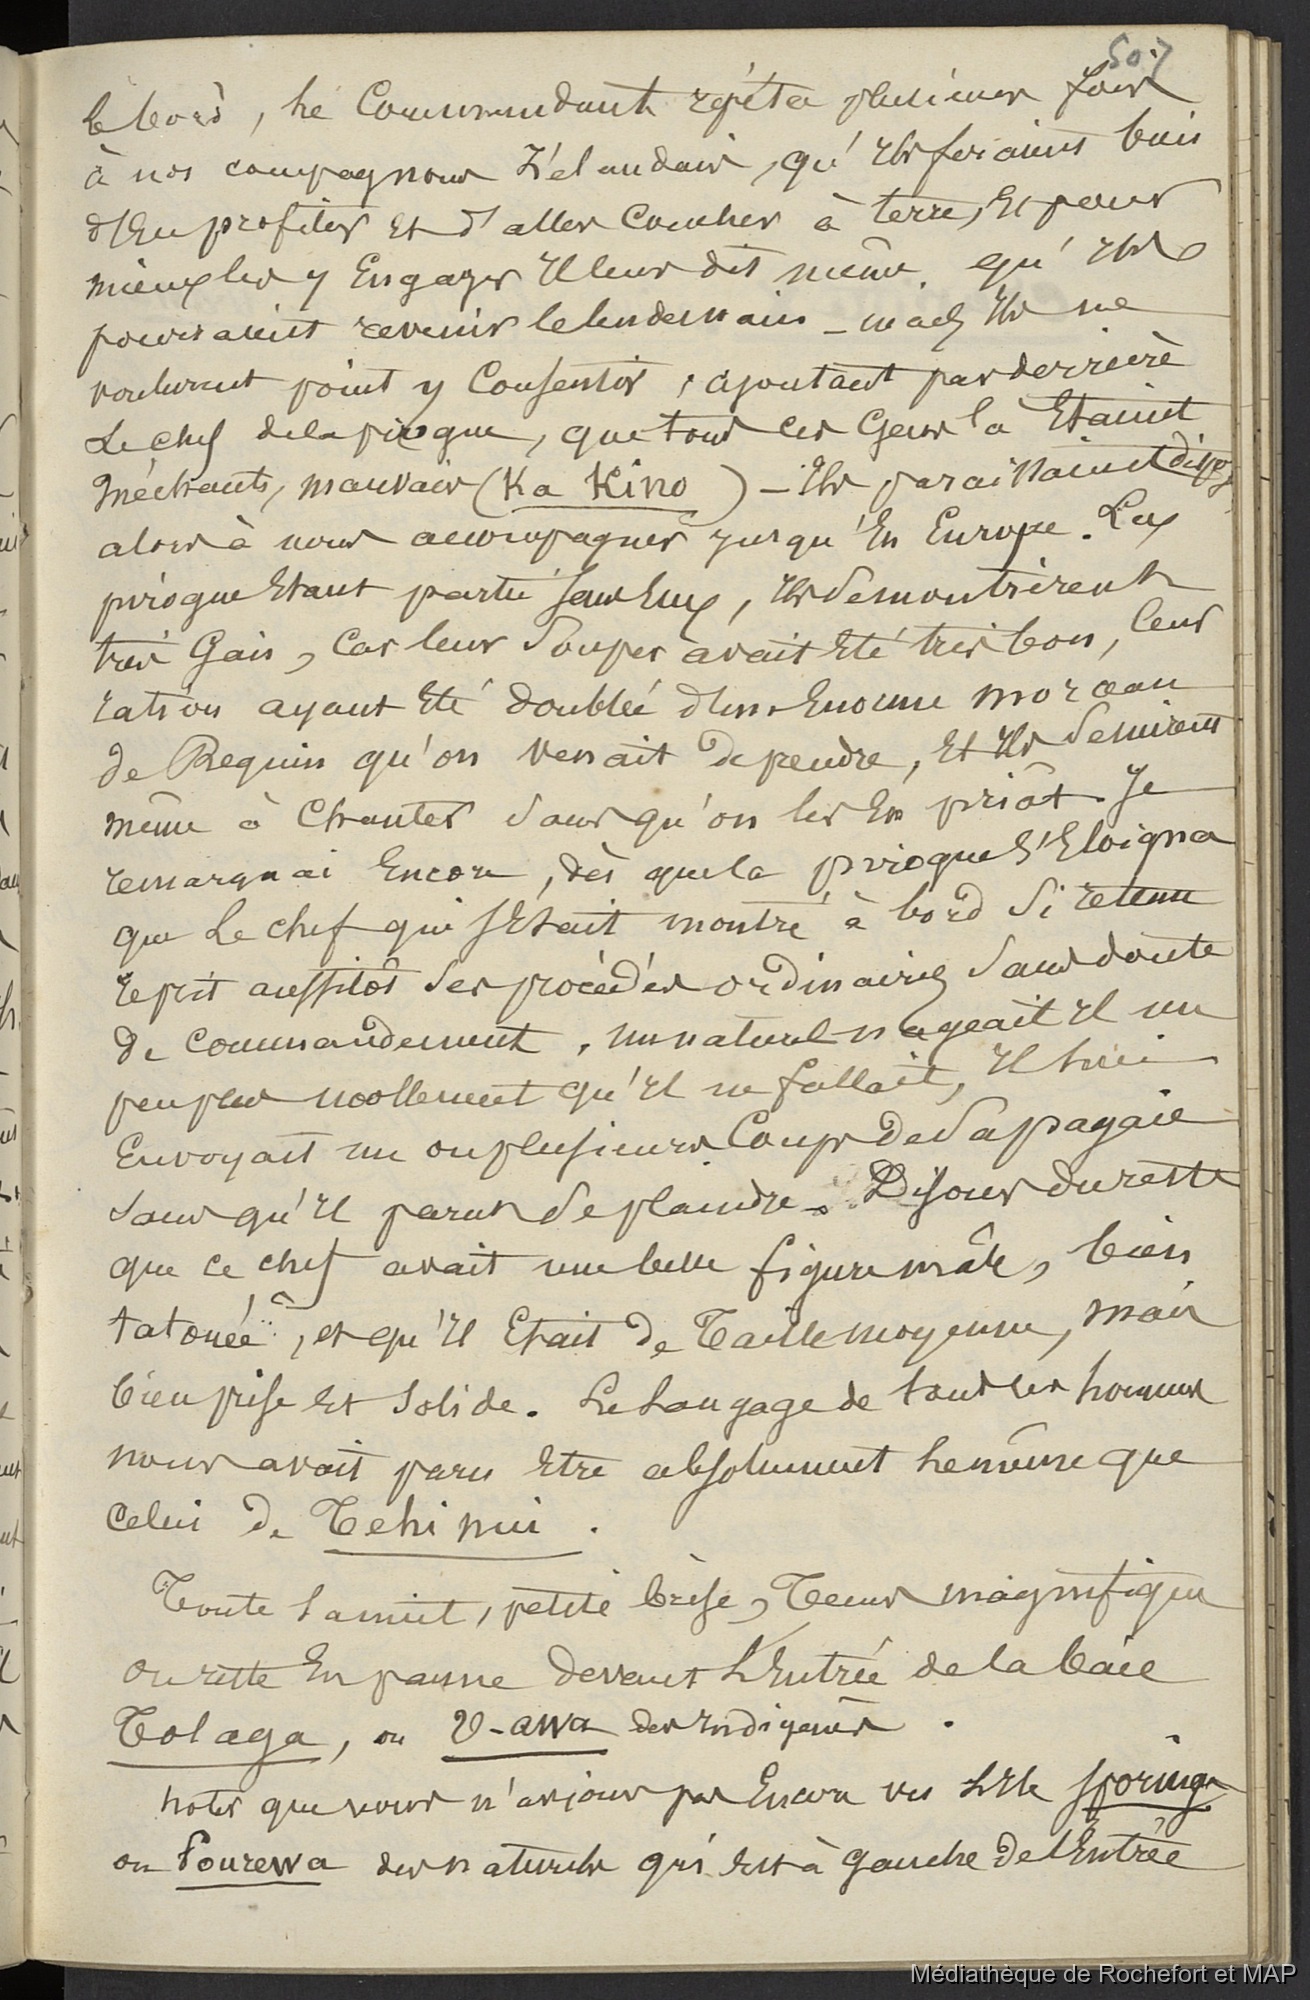 507
le bord, le Commandant répéta plusieurs fois
à nos compagnons Zélandais, qu'ils feraient bien
d'En profiter Et d'aller Coucher à terre, Et pour
mieux les y Engager Il leur dit même, qu'Ils
pourraient revenir le lendemain - mais Ils ne
voulurent point y Consentir, ajoutant par derrière
Le chef de la pirogue, que tous ces Gens là Etaient
méchants, mauvais (Ka Kino) - Ils paraissaient disp
alors à nous accompagner jusqu'En Europe. La
pirogue Etant partie sans Eux, Ils se montrèrent
très Gais, Car leur Souper avait Eté très bon, leur
ration ayant Eté doublée d'un Enorme morceau
de Requin qu'on venait de prendre, Et Ils se mirent
même à Chanter Sans qu'on les En priât. Je
remarquai Encore, dès que la pirogue S'Eloigna
que Le chef qui s'Etait montré à bord Si retenu
reprit aussitôt Ses procédés ordinaires Sans doute
de commandement, un naturel nageait Il un
peu plus mollement qu'Il ne fallait, Il lui
Envoyait un ou plusieurs Coups de Sa pagaie
Sans qu'Il parut Se plaindre. Disons du reste
que ce chef avait une belle figure mâle, bien
tatouée, et qu'Il Etait de Taille moyenne, mais
bien prise Et Solide. Le Langage de tous les hommes
nous avait paru Etre absolument le même que
Celui de Tehi nui.
Toute la nuit, petite brise, Tems magnifique
on reste En panne devant L'Entrée de la baie
Tolaga, ou U-awa des Indigènes.
Notez que nous n'avions pas Encore vu L'Ile Sporing
ou Pourewa des naturels qui Est à gauche de l'Entrée
Médiathèque de Rochefort et MAP